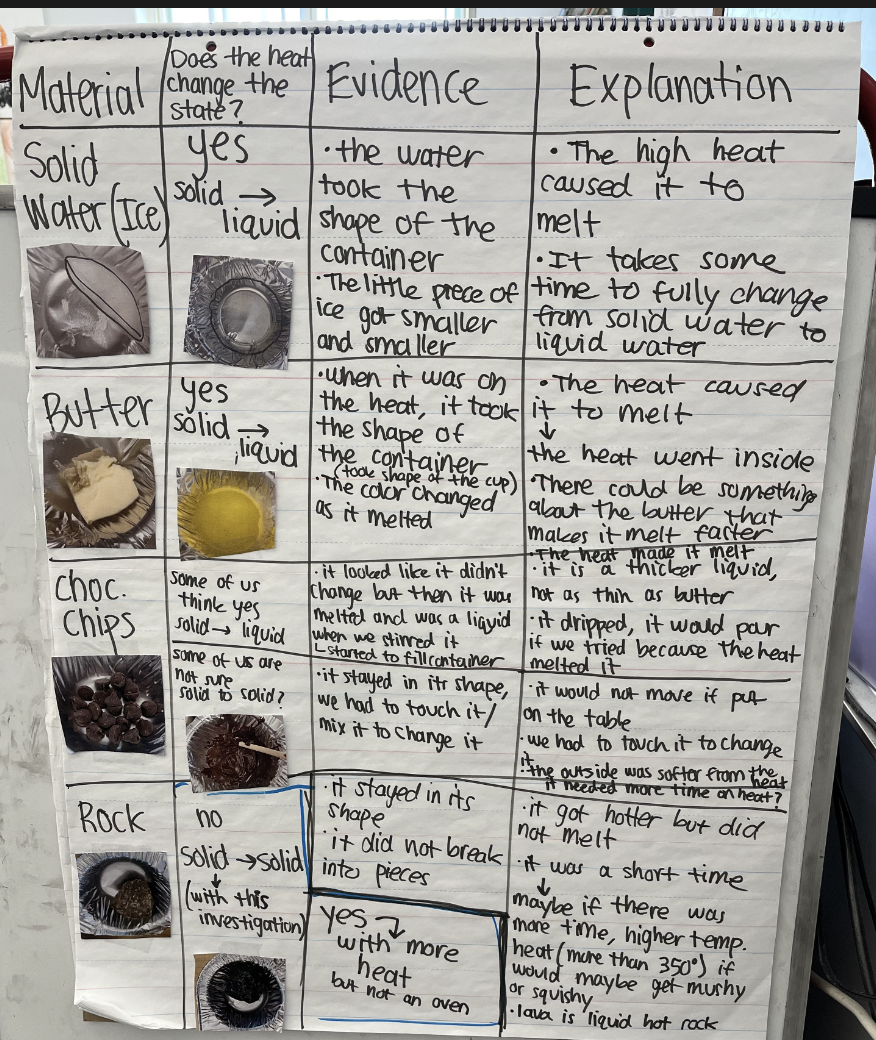 Material
Does the heat
change the
state?
Evidence
Explanation
Solid
Water (Ice)
yes
solid →
liquid
• the water
took the
shape of the
container
• The little piece of
ice got smaller
and smaller
• The high heat
caused it to
melt
• It takes some
time to fully change
from solid water to
liquid water
Butter
yes
solid →
liquid
• when it was on
the heat, it took
the shape of
the container
(took shape of the cup)
• The color changed
as it melted
• The heat caused
it to melt
↓
the heat went inside
• There could be something
about the butter that
makes it melt faster
Choc.
Chips
some of us
think yes
solid → liquid
• it looked like it didn't
change but then it was
melted and was a liquid
when we stirred it
└ started to fill container
• The heat made it melt
• it is a thicker liquid,
not as thin as butter
• it dripped, it would pour
if we tried because the heat
melted it
some of us are
not sure
solid to solid?
• it stayed in its shape,
we had to touch it/
mix it to change it
• it would not move if put
on the table
• we had to touch it to change
it
• the outside was softer from the heat
it needed more time on heat?
Rock
no
solid → solid
↓
(with this
investigation)
• it stayed in its
shape
• it did not break
into pieces
yes
with more
heat
but not an oven
• it got hotter but did
not melt
• it was a short time
↓
maybe if there was
more time, higher temp.
heat (more than 350°) it
would maybe get mushy
or squishy
• lava is liquid hot rock